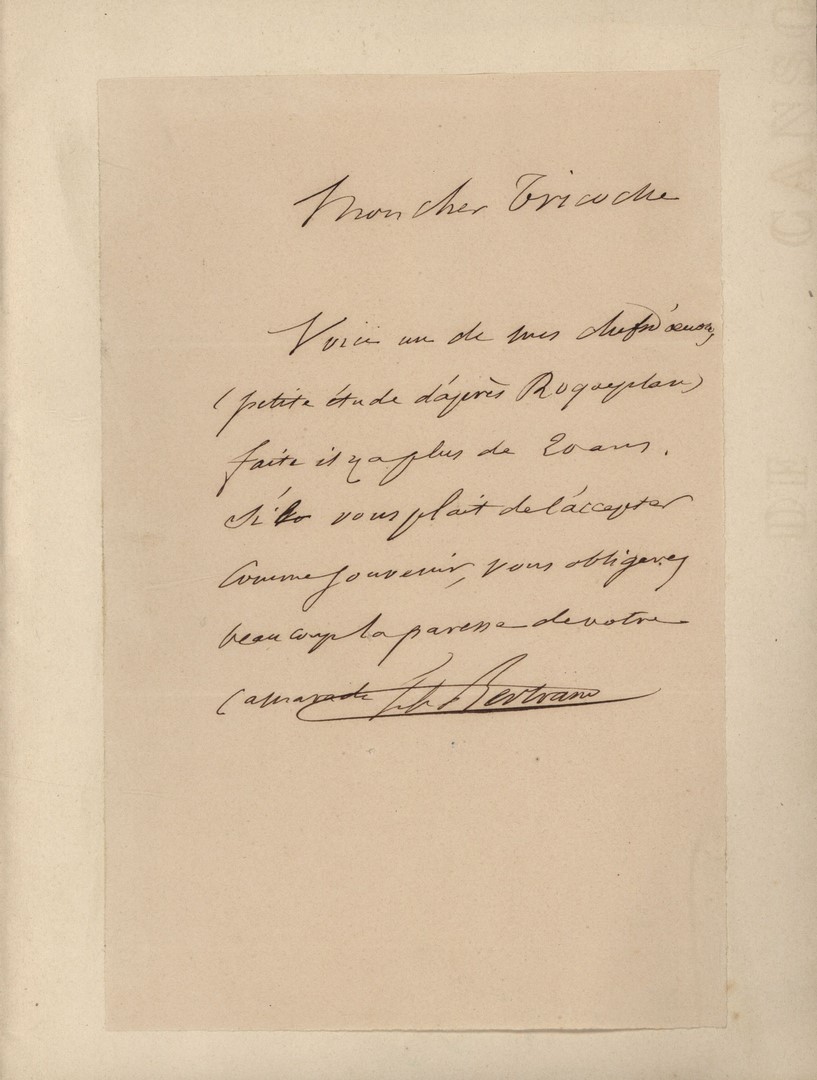 Mon cher Tricoche
Voici un de mes chefs d'œuvre,
(petite étude d'après Roqueplan)
faite il y a plus de 20 ans.
S'il vous plait de l'accepter
comme souvenir, vous obligerez
beaucoup la paresse de votre
camarade Bertrand
CANSO
DE